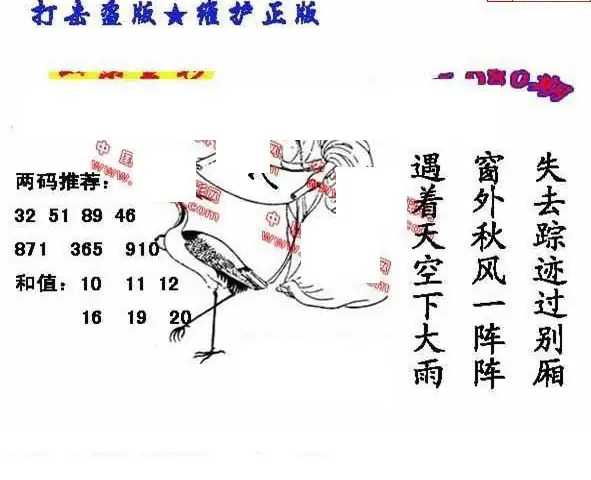 打击盗版★维护正版
两码推荐：
32 51 89 46
871 365 910
和值：10 11 12
16 19 20
失去踪迹过别厢
窗外秋风一阵阵
遇着天空下大雨
中国
www.
.com
中
www